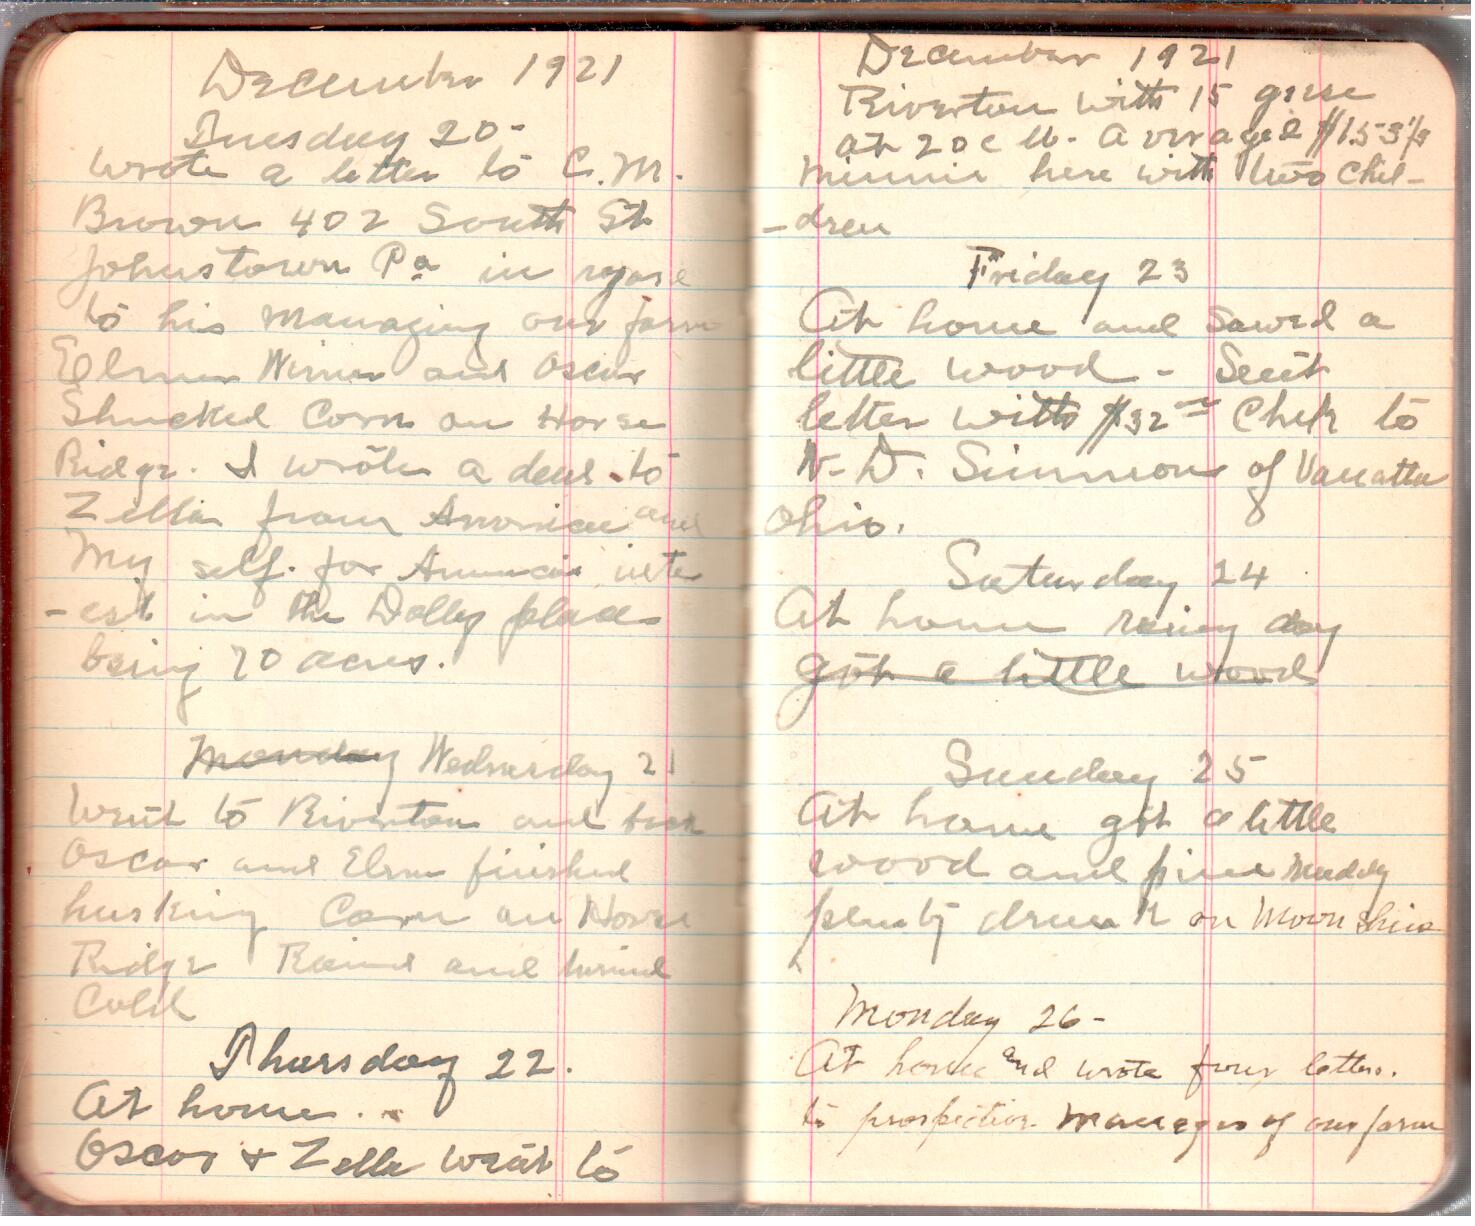 December 1921
Tuesday 20-
Wrote a letter to C. M.
Brown 402 South St
Johnstown Pa in
to his managing our farm
Elmer and Oscar
Shucked Corn on Horse
Ridge. I wrote a deed to
Zella from America and
My self. for Americas inte
-est in the Dolly place
being 70 acres.
Monday Wednesday 21
Went to Riverton and back
Oscar and Elmer finished
husking Corn on Horse
Ridge Rained and turned
Cold
Thursday 22.
At home.
Oscar & Zella went to
December 1921
Riverton with 15 geese
at 20c lb. averaged $1.53 1/3
Minnie here with two Chil-
-dren
Friday 23
At home and Sawed a
little wood - Sent
letter with $32 Chek to
N. D. Simmons of Vanatta
Ohio.
Saturday 24
At home rainy day
got a little wood
Sunday 25
At home got a little
wood and fine Muddy
plenty drunk on Moonshine
Monday 26-
At home and wrote four letters.
to prospective Manager of our farm